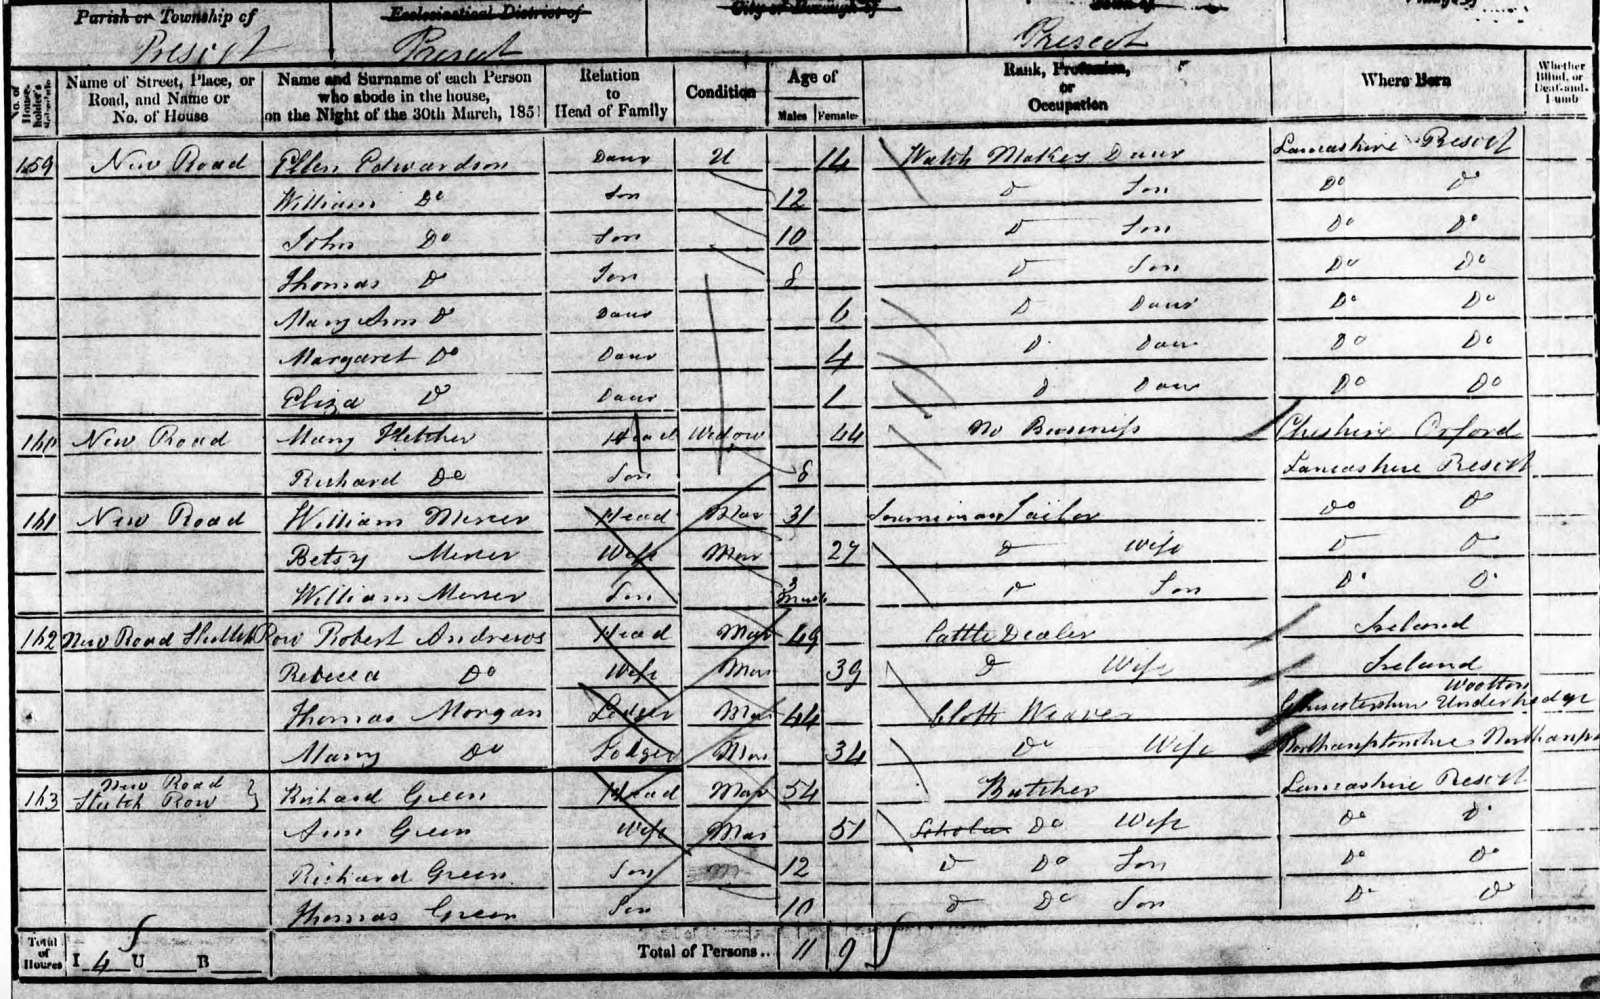 Parish or Township of
Ecclesiastical District of
City or Borough of
Town of
Prescot
Prescot
Prescot
No. of House-holder's Schedule
Name of Street, Place, or Road, and Name or No. of House
Name and Surname of each Person who abode in the house, on the Night of the 30th March, 1851
Relation to Head of Family
Condition
Age of
Males
Females
Rank, Profession, or Occupation
Where Born
Whether Blind, or Deaf-and-Dumb
159 New Road Ellen Edwardson Daur U 14 Watch Maker Daur Lancashire Prescot
William Do Son 12 Do Son Do Do
John Do Son 10 Do Son Do Do
Thomas Do Son 8 Do Son Do Do
Mary Ann Do Daur 6 Do Daur Do Do
Margaret Do Daur 4 Do Daur Do Do
Eliza Do Daur 1 Do Daur Do Do
160 New Road Mary Fletcher Head Widow 44 No Business Cheshire Orford
Richard Do Son 8 Lancashire Prescot
161 New Road William Mercer Head Mar 31 Tailor Do Do
Betsy Mercer Wife Mar 27 Do Wife Do Do
William Mercer Son 3 Do Son Do Do
162 New Road Row Robert Andrews Head Mar 49 Cattle Dealer Ireland
Rebecca Do Wife Mar 39 Do Wife Ireland
Thomas Morgan Lodger Mar 44 Cloth Weaver Gloucestershire Wootton Underhedge
Mary Do Lodger Mar 34 Do Wife Northamptonshire
163 New Road Row } Richard Green Head Mar 54 Butcher Lancashire Prescot
Ann Green Wife Mar 51 Scholar Do Wife Do Do
Richard Green Son 12 Do Do Son Do Do
Thomas Green Son 10 Do Do Son Do Do
Total of Houses I 4 U B Total of Persons.. 11 9